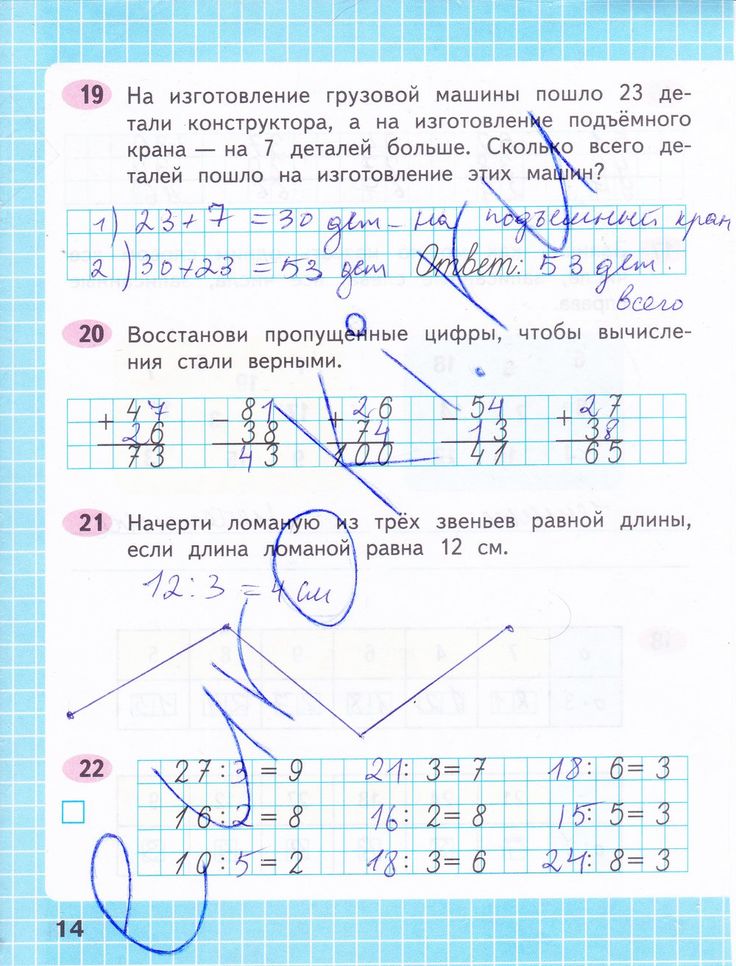 19 На изготовление грузовой машины пошло 23 де-
тали конструктора, а на изготовление подъёмного
крана — на 7 деталей больше. Сколько всего де-
талей пошло на изготовление этих машин?
1) 23+7 = 30 дет – на подъемный кран
2) 30+23 = 53 дет Ответ: 53 дет.
всего
20 Восстанови пропущенные цифры, чтобы вычисле-
ния стали верными.
+ 47 − 81 + 26 − 54 + 27
26 38 74 13 38
73 43 100 41 65
21 Начерти ломаную из трёх звеньев равной длины,
если длина ломаной равна 12 см.
12 : 3 = 4 см
22 27 : 3 = 9 21 : 3 = 7 18 : 6 = 3
16 : 2 = 8 16 : 2 = 8 15 : 5 = 3
10 : 5 = 2 18 : 3 = 6 24 : 8 = 3
14